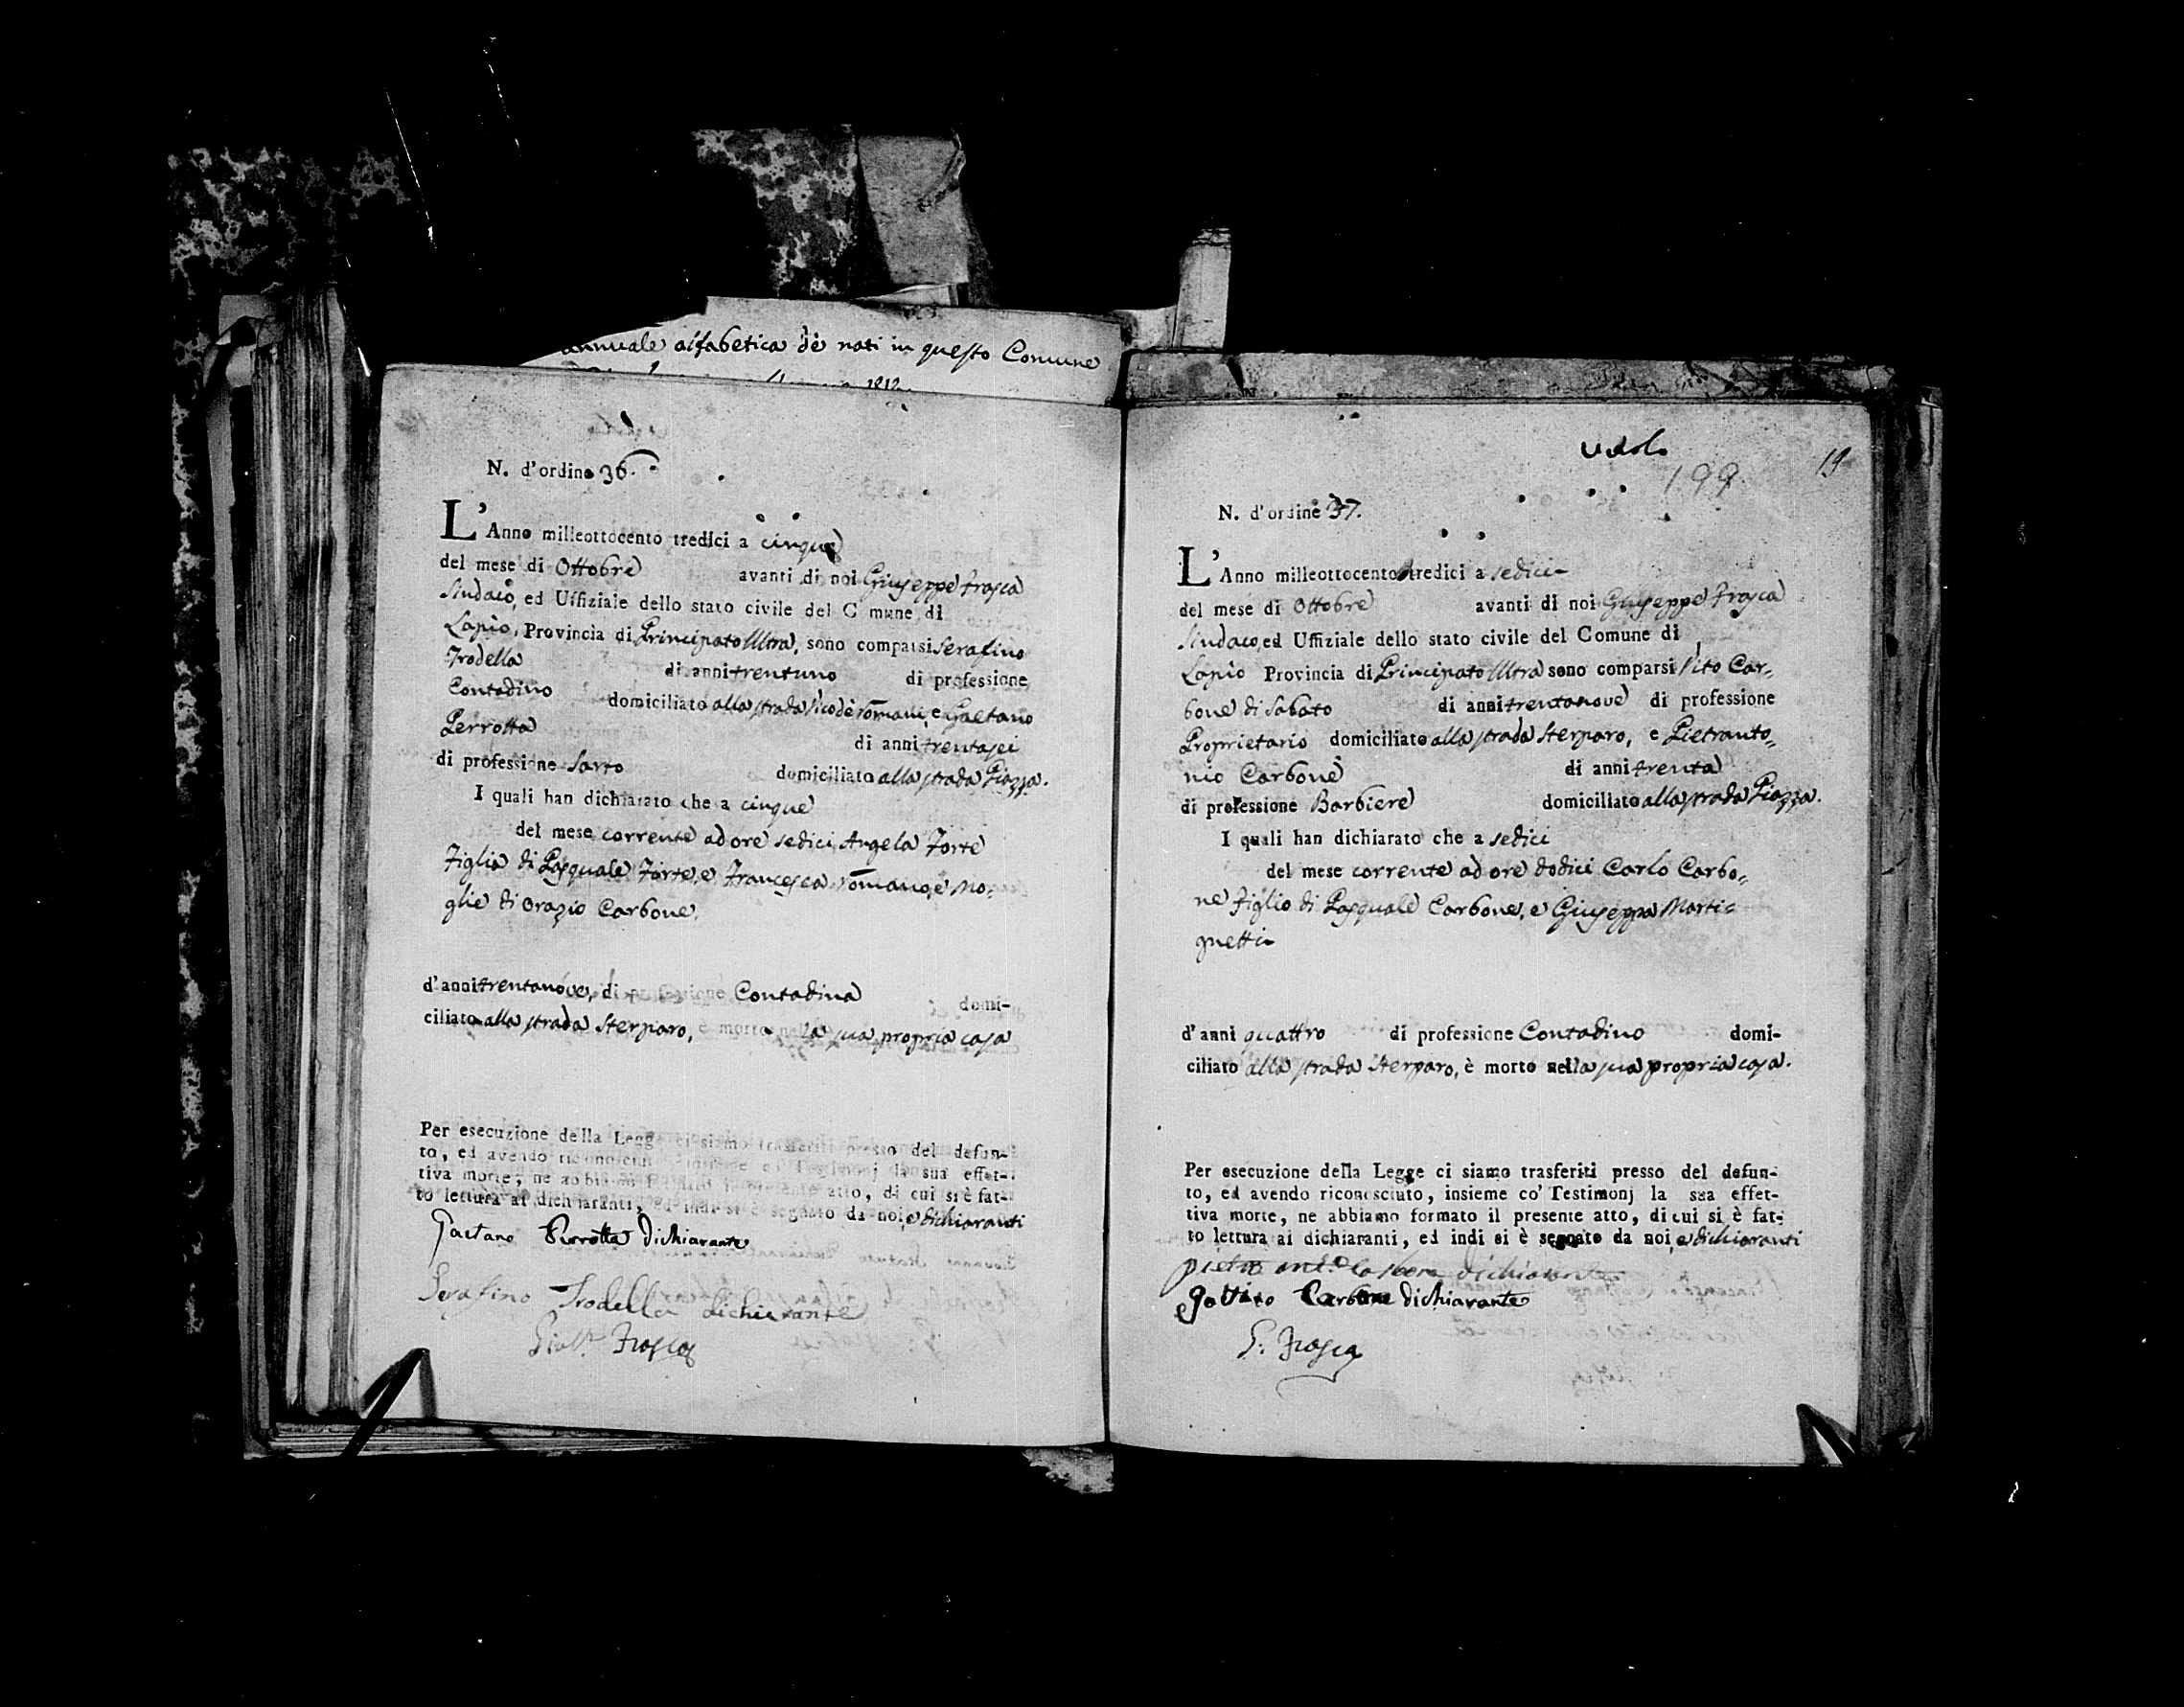 annuale alfabetica de nati in questo Comune
1812
N. d'ordine 36.
L'Anno milleottocento tredici a cinque
del mese di Ottobre avanti di noi Giuseppe Frasca
Sindaco, ed Uffiziale dello stato civile del C mune di
Lapio, Provincia di Principato Ultra, sono comparsi Serafino
Trodella di anni trentuno di professione
Contadino domiciliato alla strada Vico de Romani, e Gaetano
Perrotta di anni trentasei
di professione Sarto domiciliato alla strada Piazza.
I quali han dichiarato che a cinque
del mese corrente ad ore sedici Angela Forte
Figlia di Pasquale Forte, e Francesca Romano, e Mo-
glie di Orazio Carbone,
d'anni trentanove, di professione Contadina domi-
ciliato alla strada Sterparo, è morto nella sua propria casa
Per esecuzione della Legge ci siamo trasferiti presso del defun-
to, ed avendo riconosciuto, insieme co' Testimonj la sua effet-
tiva morte, ne abbiamo formato il presente atto, di cui si è fat-
to lettura ai dichiaranti, ed indi si è segnato da noi, e dichiaranti
Gaetano Perrotta dichiarante
Serafino Trodella dichiarante
Frasca
199
19
N. d'ordine 37.
L'Anno milleottocento tredici a sedici
del mese di Ottobre avanti di noi Giuseppe Frasca
Sindaco, ed Uffiziale dello stato civile del Comune di
Lapio Provincia di Principato Ultra sono comparsi Vito Car-
bone di Sabato di anni trentanove di professione
Proprietario domiciliato alla strada Sterparo, e Pietranto-
nio Carbone di anni trenta
di professione Barbiere domiciliato alla strada Piazza.
I quali han dichiarato che a sedici
del mese corrente ad ore dodici Carlo Carbo-
ne Figlio di Pasquale Carbone, e Giuseppa Marti-
gnetti
d'anni quattro di professione Contadino domi-
ciliato alla strada Sterparo, è morto nella sua propria casa.
Per esecuzione della Legge ci siamo trasferiti presso del defun-
to, ed avendo riconosciuto, insieme co' Testimonj la sua effet-
tiva morte, ne abbiamo formato il presente atto, di cui si è fat-
to lettura ai dichiaranti, ed indi si è segnato da noi, e dichiaranti
pietro ant.o carbone dichiarante
Vito Carbone dichiarante
G. Frasca